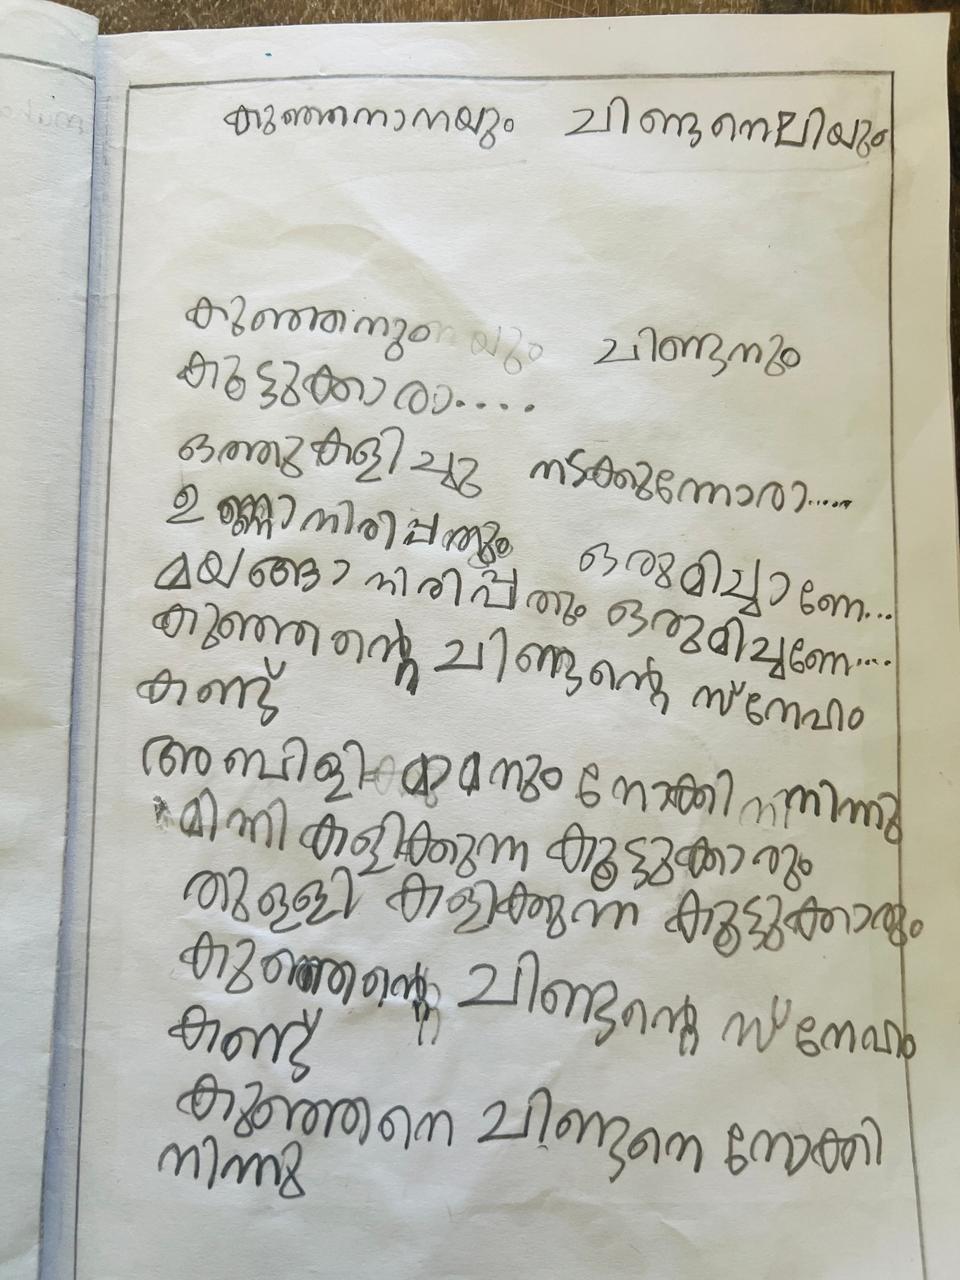 കുഞ്ഞനാനയും ചിണ്ടനെലിയും
കുഞ്ഞനും ചിണ്ടനും
കൂട്ടുക്കാരാ....
ഒത്തുകളിച്ചു നടക്കുന്നോരാ.....
ഉണ്ണാനിരിപ്പതും ഒരുമിച്ചാണേ...
മയങ്ങാനിരിപ്പതും ഒരുമിച്ചണേ....
കുഞ്ഞന്റെ ചിണ്ടന്റെ സ്നേഹം
കണ്ട്
അമ്പിളി മാമനും നോക്കി നിന്നു
മിന്നി കളിക്കുന്ന കൂട്ടുക്കാരും
തുള്ളി കളിക്കുന്ന കൂട്ടുക്കാരും
കുഞ്ഞന്റെ ചിണ്ടന്റെ സ്നേഹം
കണ്ട്
കുഞ്ഞനെ ചിണ്ടനെ നോക്കി
നിന്നു